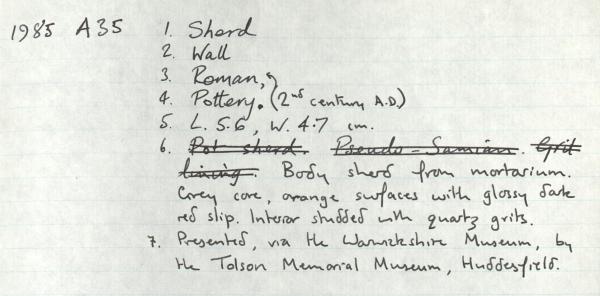 1985 A35 1. Sherd
2. Wall
3. Roman,
4. Pottery. (2nd century A.D.)
5. L. 5.6, W. 4.7 cm.
6. Pot sherd. Pseudo-Samian. Grit
lining. Body sherd from mortarium.
Grey core, orange surfaces with glossy dark
red slip. Interior studded with quartz grits.
7. Presented, via the Warwickshire Museum, by
the Tolson Memorial Museum, Huddesfield.